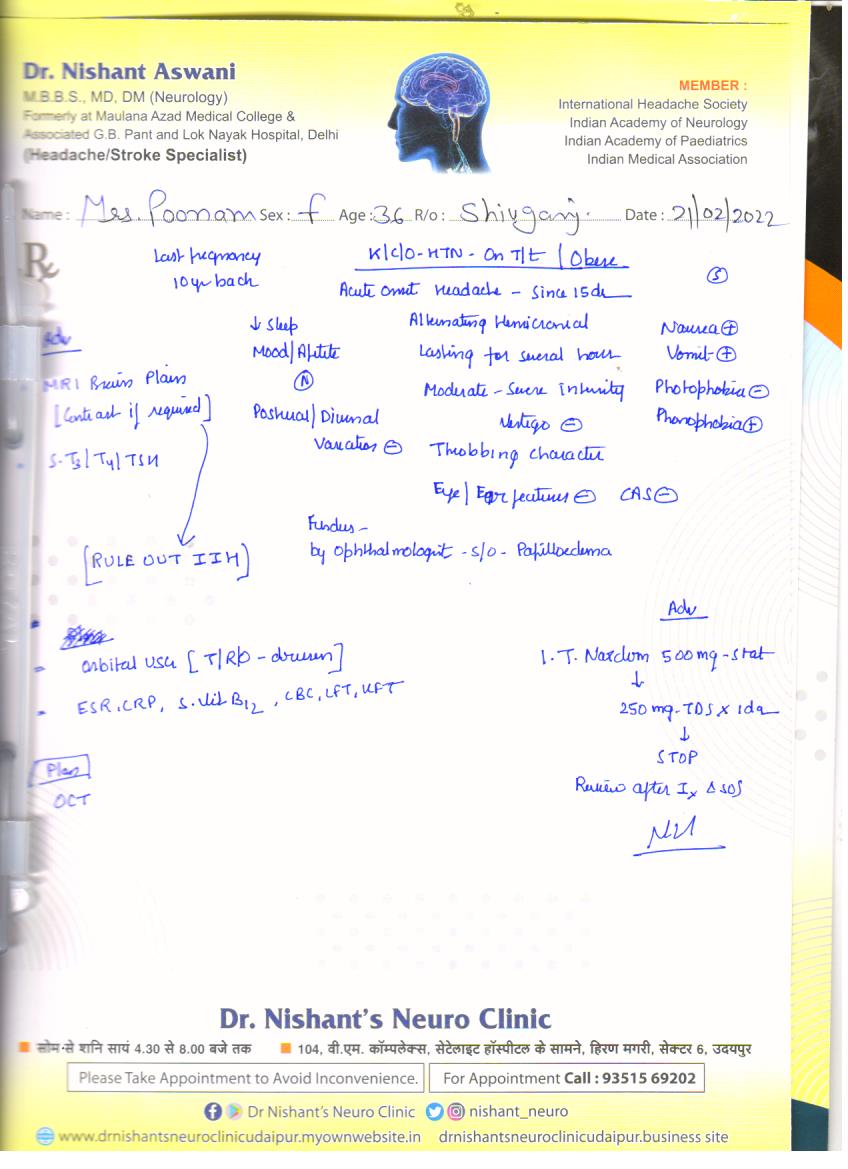 Dr. Nishant Aswani
M.B.B.S., MD, DM (Neurology)
Formerly at Maulana Azad Medical College &
Associated G.B. Pant and Lok Nayak Hospital, Delhi
(Headache/Stroke Specialist)
MEMBER :
International Headache Society
Indian Academy of Neurology
Indian Academy of Paediatrics
Indian Medical Association
Name : Mrs. Poonam Sex : f Age : 36 R/o : Shivganj. Date : 21/02/2022
Rx
Last pregnancy
10 yr back
K/C/O - HTN - On T/t | Obese
Acute onset Headache - Since 15d
Alternating Hemicranial
Lasting for several hour
Moderate - Severe intensity
Vertigo ⊖
Throbbing character
Eye/ Ear features ⊖ CAS ⊖
(S)
Nausea ⊕
Vomit - ⊕
Photophobia ⊖
Phonophobia ⊕
↓ Sleep
Mood/
(N)
Postural/ Diurnal
Variation ⊖
Fundus -
by Ophthalmologist - S/O - Papilloedema
Adv
MRI Brain Plain
[Contrast if required]
S. T3/ T4/ TSH
[RULE OUT IIH]
- Orbital USG [T/R/O - drusen]
- ESR, CRP, S. Vit B12, CBC, LFT, KFT
Plan
OCT
Adv
1. T. Naxdom 500 mg - Stat
↓
250 mg - TDS x 1d
↓
STOP
Review after Ix & SOS
Dr. Nishant's Neuro Clinic
सोम से शनि सायं 4.30 से 8.00 बजे तक
104, वी.एम. कॉम्पलेक्स, सेटेलाइट हॉस्पीटल के सामने, हिरण मगरी, सेक्टर 6, उदयपुर
Please Take Appointment to Avoid Inconvenience.
For Appointment Call : 93515 69202
Dr Nishant's Neuro Clinic
nishant_neuro
www.drnishantsneuroclinicudaipur.myownwebsite.in
drnishantsneuroclinicudaipur.business site